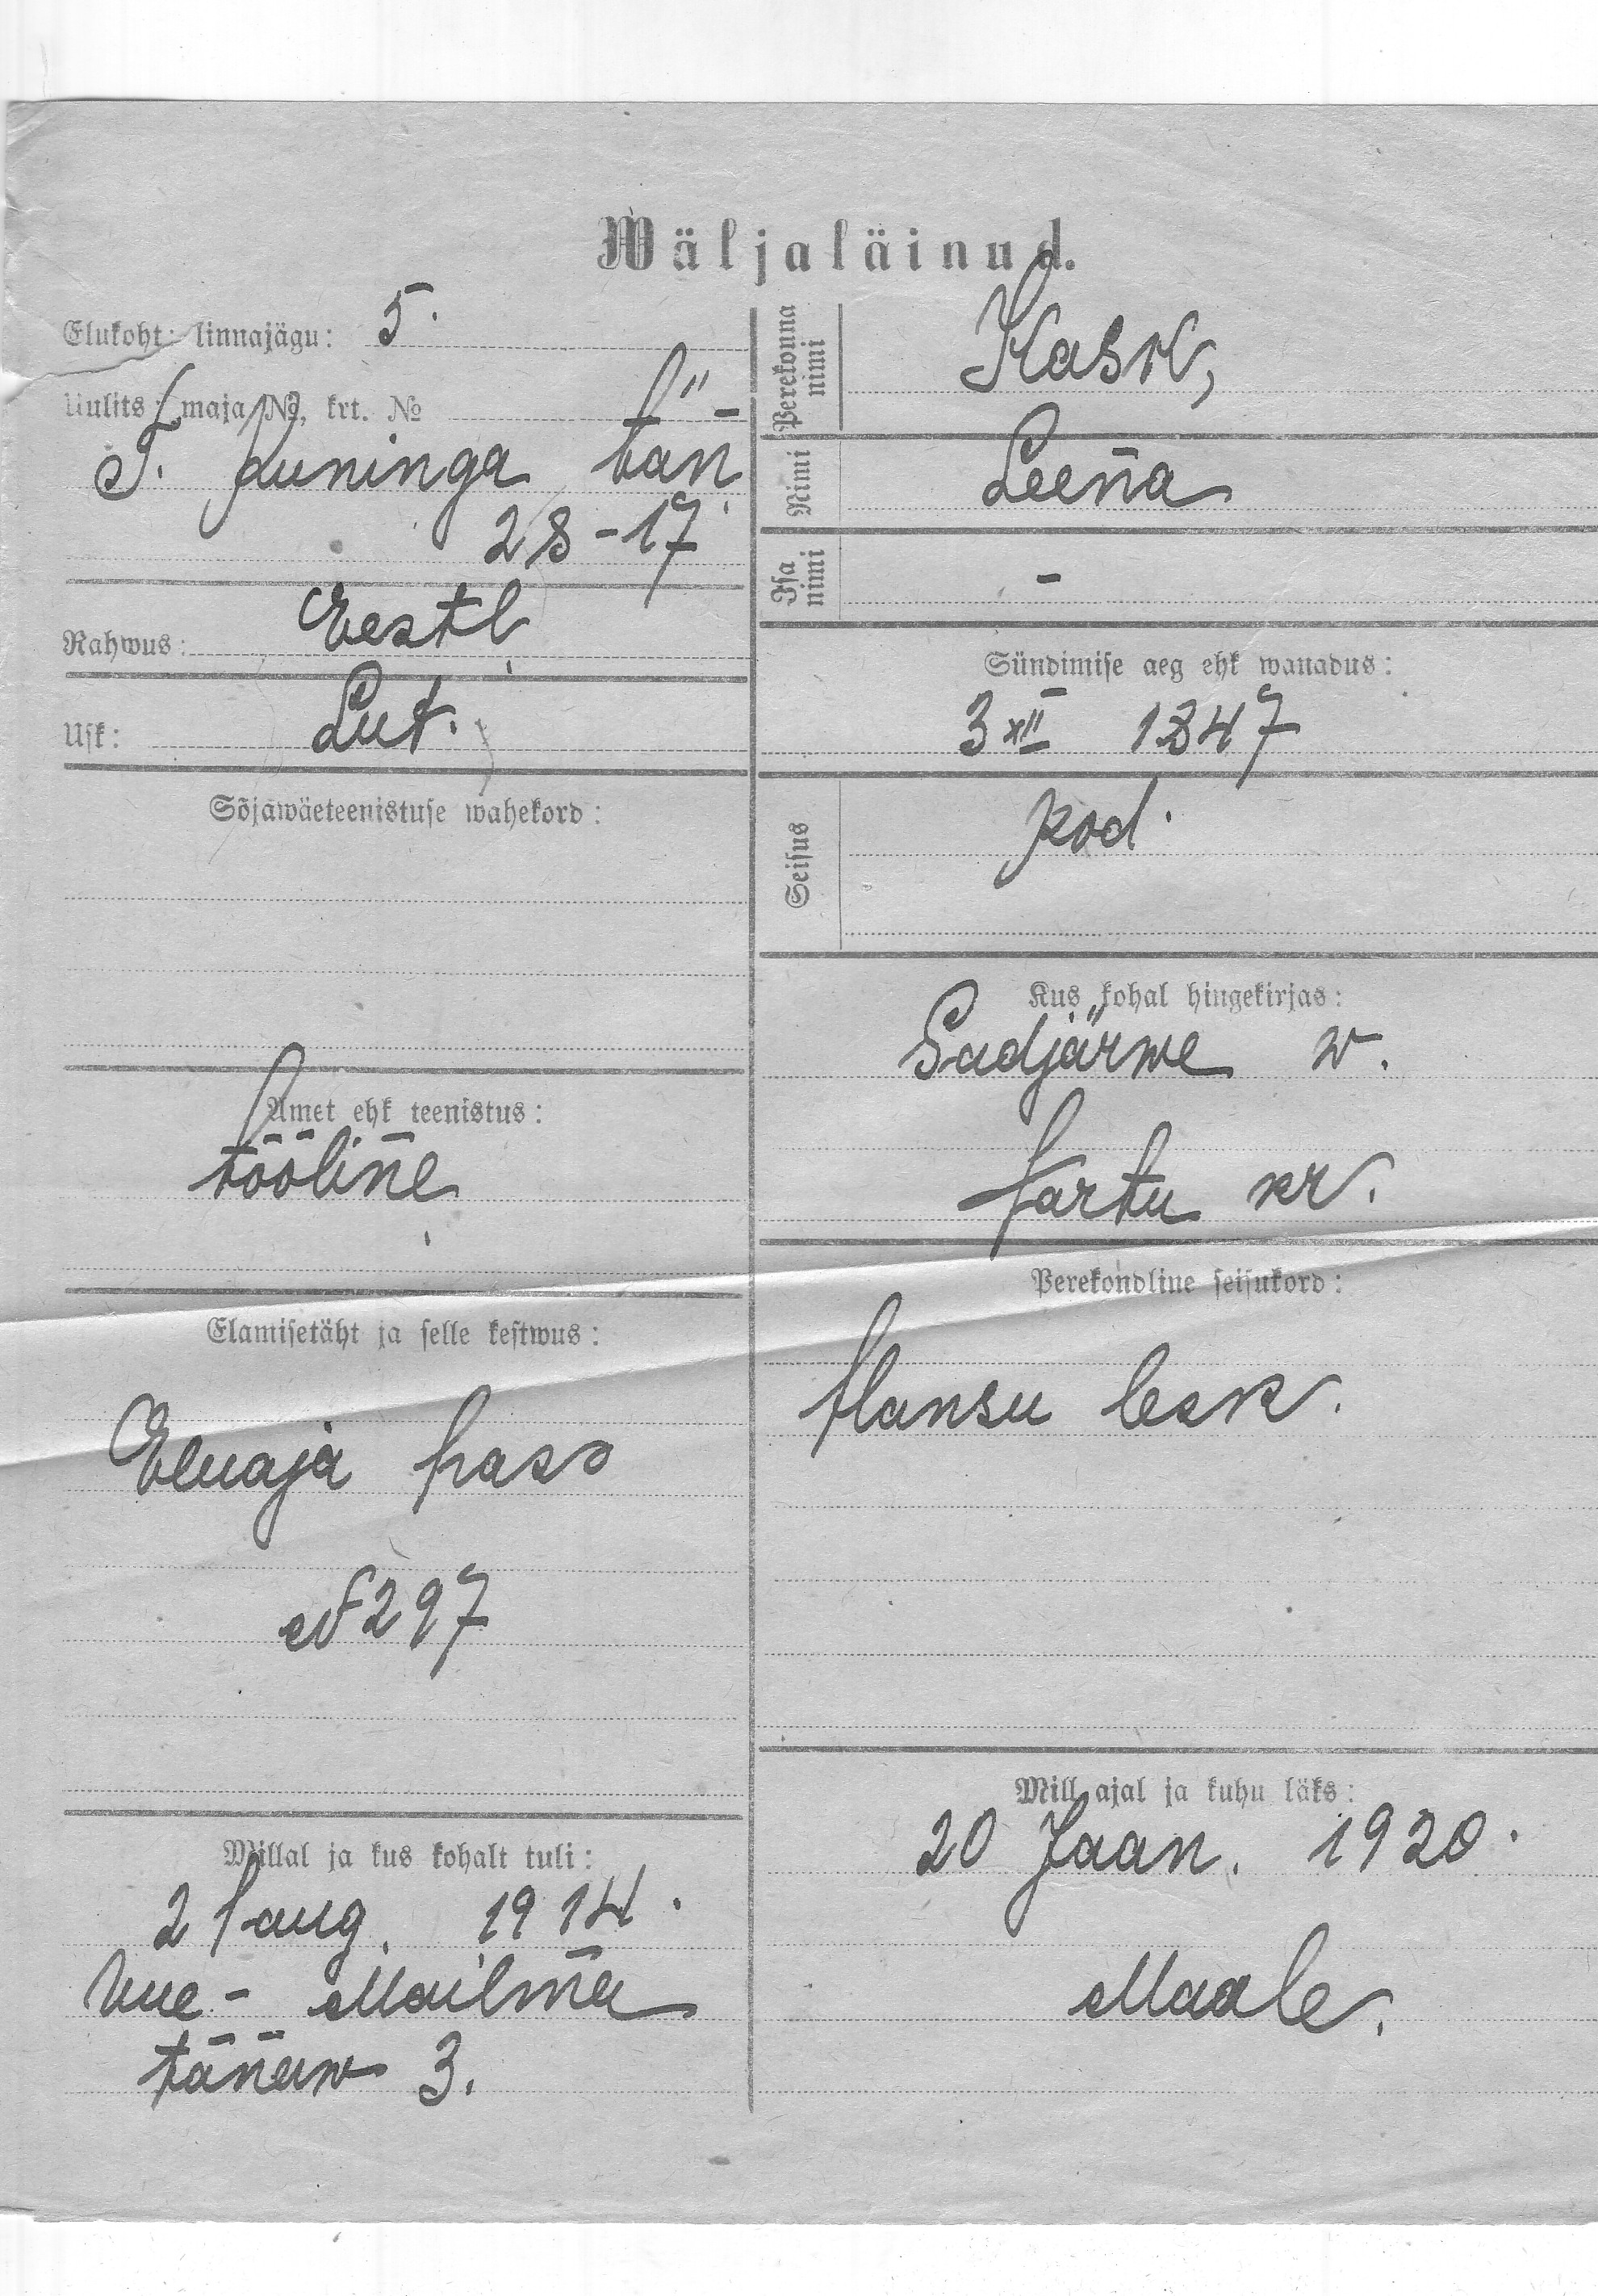 Wäljaläinud.
Elukoht: linnajägu: 5.
Uulits, maja №, krt. №
T. Kuninga tän.
28-17
Rahwus: Eestl.
Usk: Lut.
Sõjawäeteenistuse wahekord:
Amet ehk teenistus:
tööline
Elamisetäht ja selle kestwus:
Eluaja pass
№ 297
Millal ja kus kohalt tuli:
21 aug. 1914.
Uue- Mailma
tänaw 3.
Perekonna nimi Kask,
Nimi Leena
Isa nimi -
Sündimise aeg ehk wanadus:
3 XII 1847
Seisus kod.
Kus kohal hingekirjas:
Sadjärwe w.
Tartu kr.
Perekondline seisukord:
Hansu lesk.
Mill ajal ja kuhu läks:
20 Jaan. 1920.
Maale.